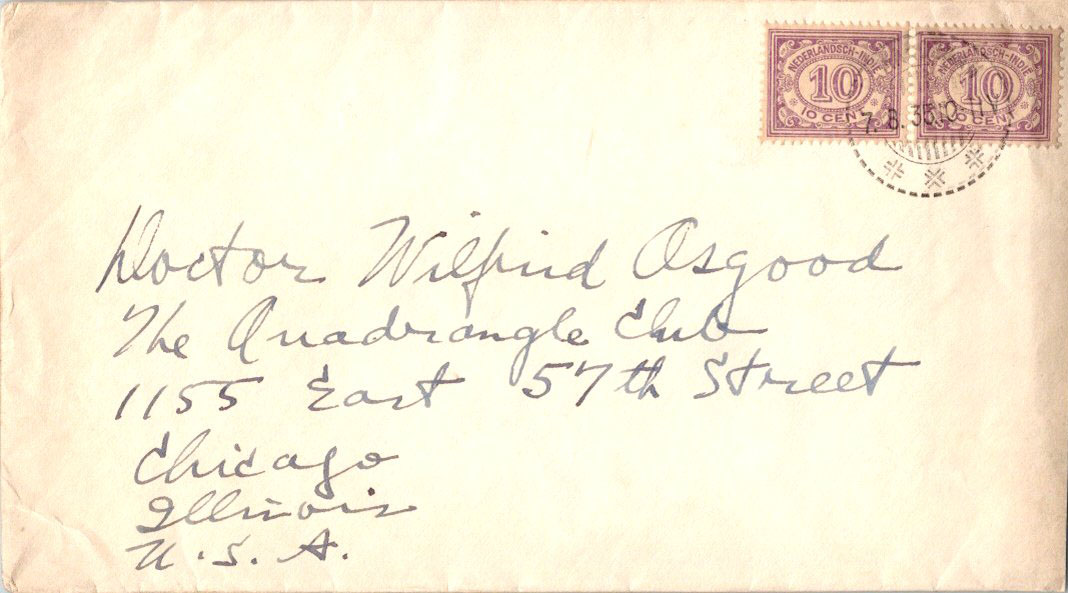 NEDERLANDSCH-INDIË
10
10 CENT
NEDERLANDSCH-INDIË
10
10 CENT
7. 8. 35.
Doctor Wilfrid Osgood
The Quadrangle Club
1155 East 57th Street
Chicago
Illinois
U.S.A.